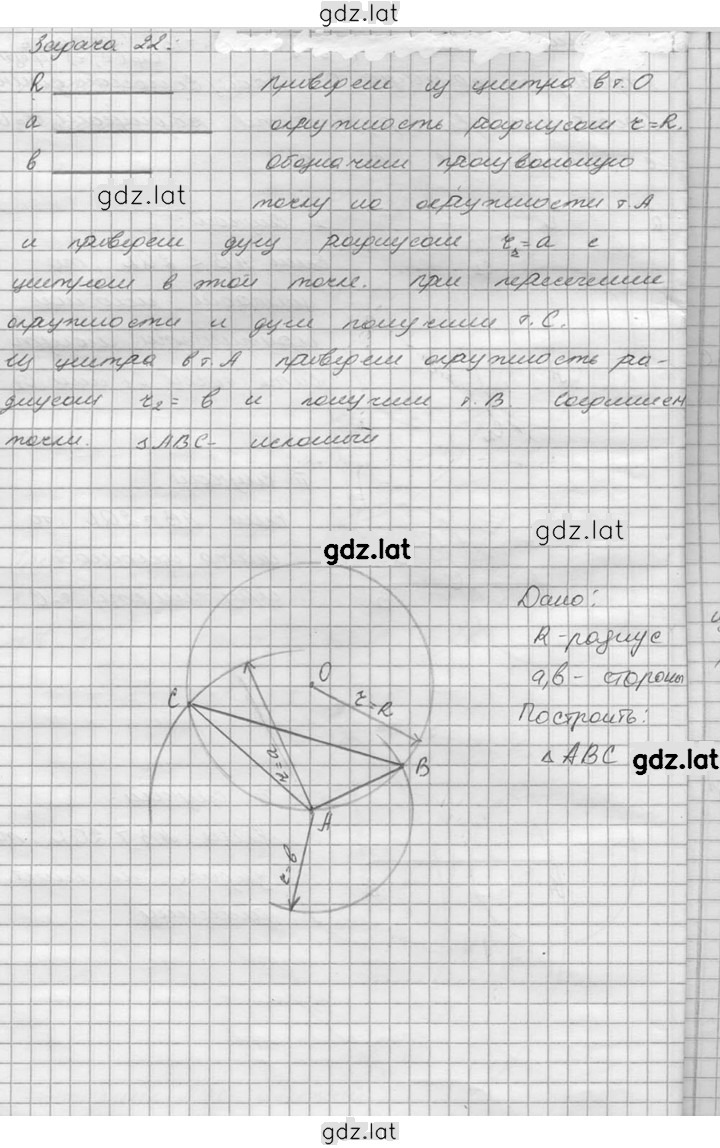 gdz.lat
Задача 22:
R Приведем из центра в т.О
a окружность радиусом r=R.
в Обозначим произвольную
gdz.lat
точку на окружности т.А
и приведем дугу радиусом r₂=a с
центром в этой точке. При пересечении
окружности и дуги получим т.С.
Из центра в т.А приведем окружность ра-
диусом r₂=в и получим т.В. Соединяем
точки. △ABC- искомый
gdz.lat
gdz.lat
Дано:
R-радиус
a,в- стороны
Построить:
△ABC
gdz.lat
O
C
r=R
r=a
B
A
r=в
gdz.lat